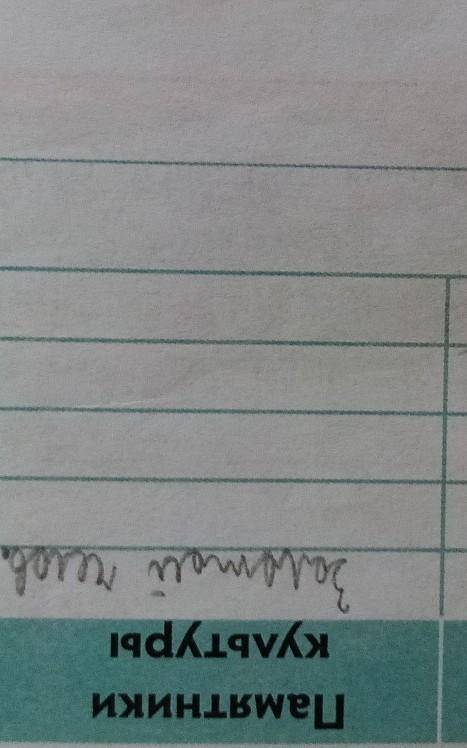 Памятники
культуры
Золотой челов.